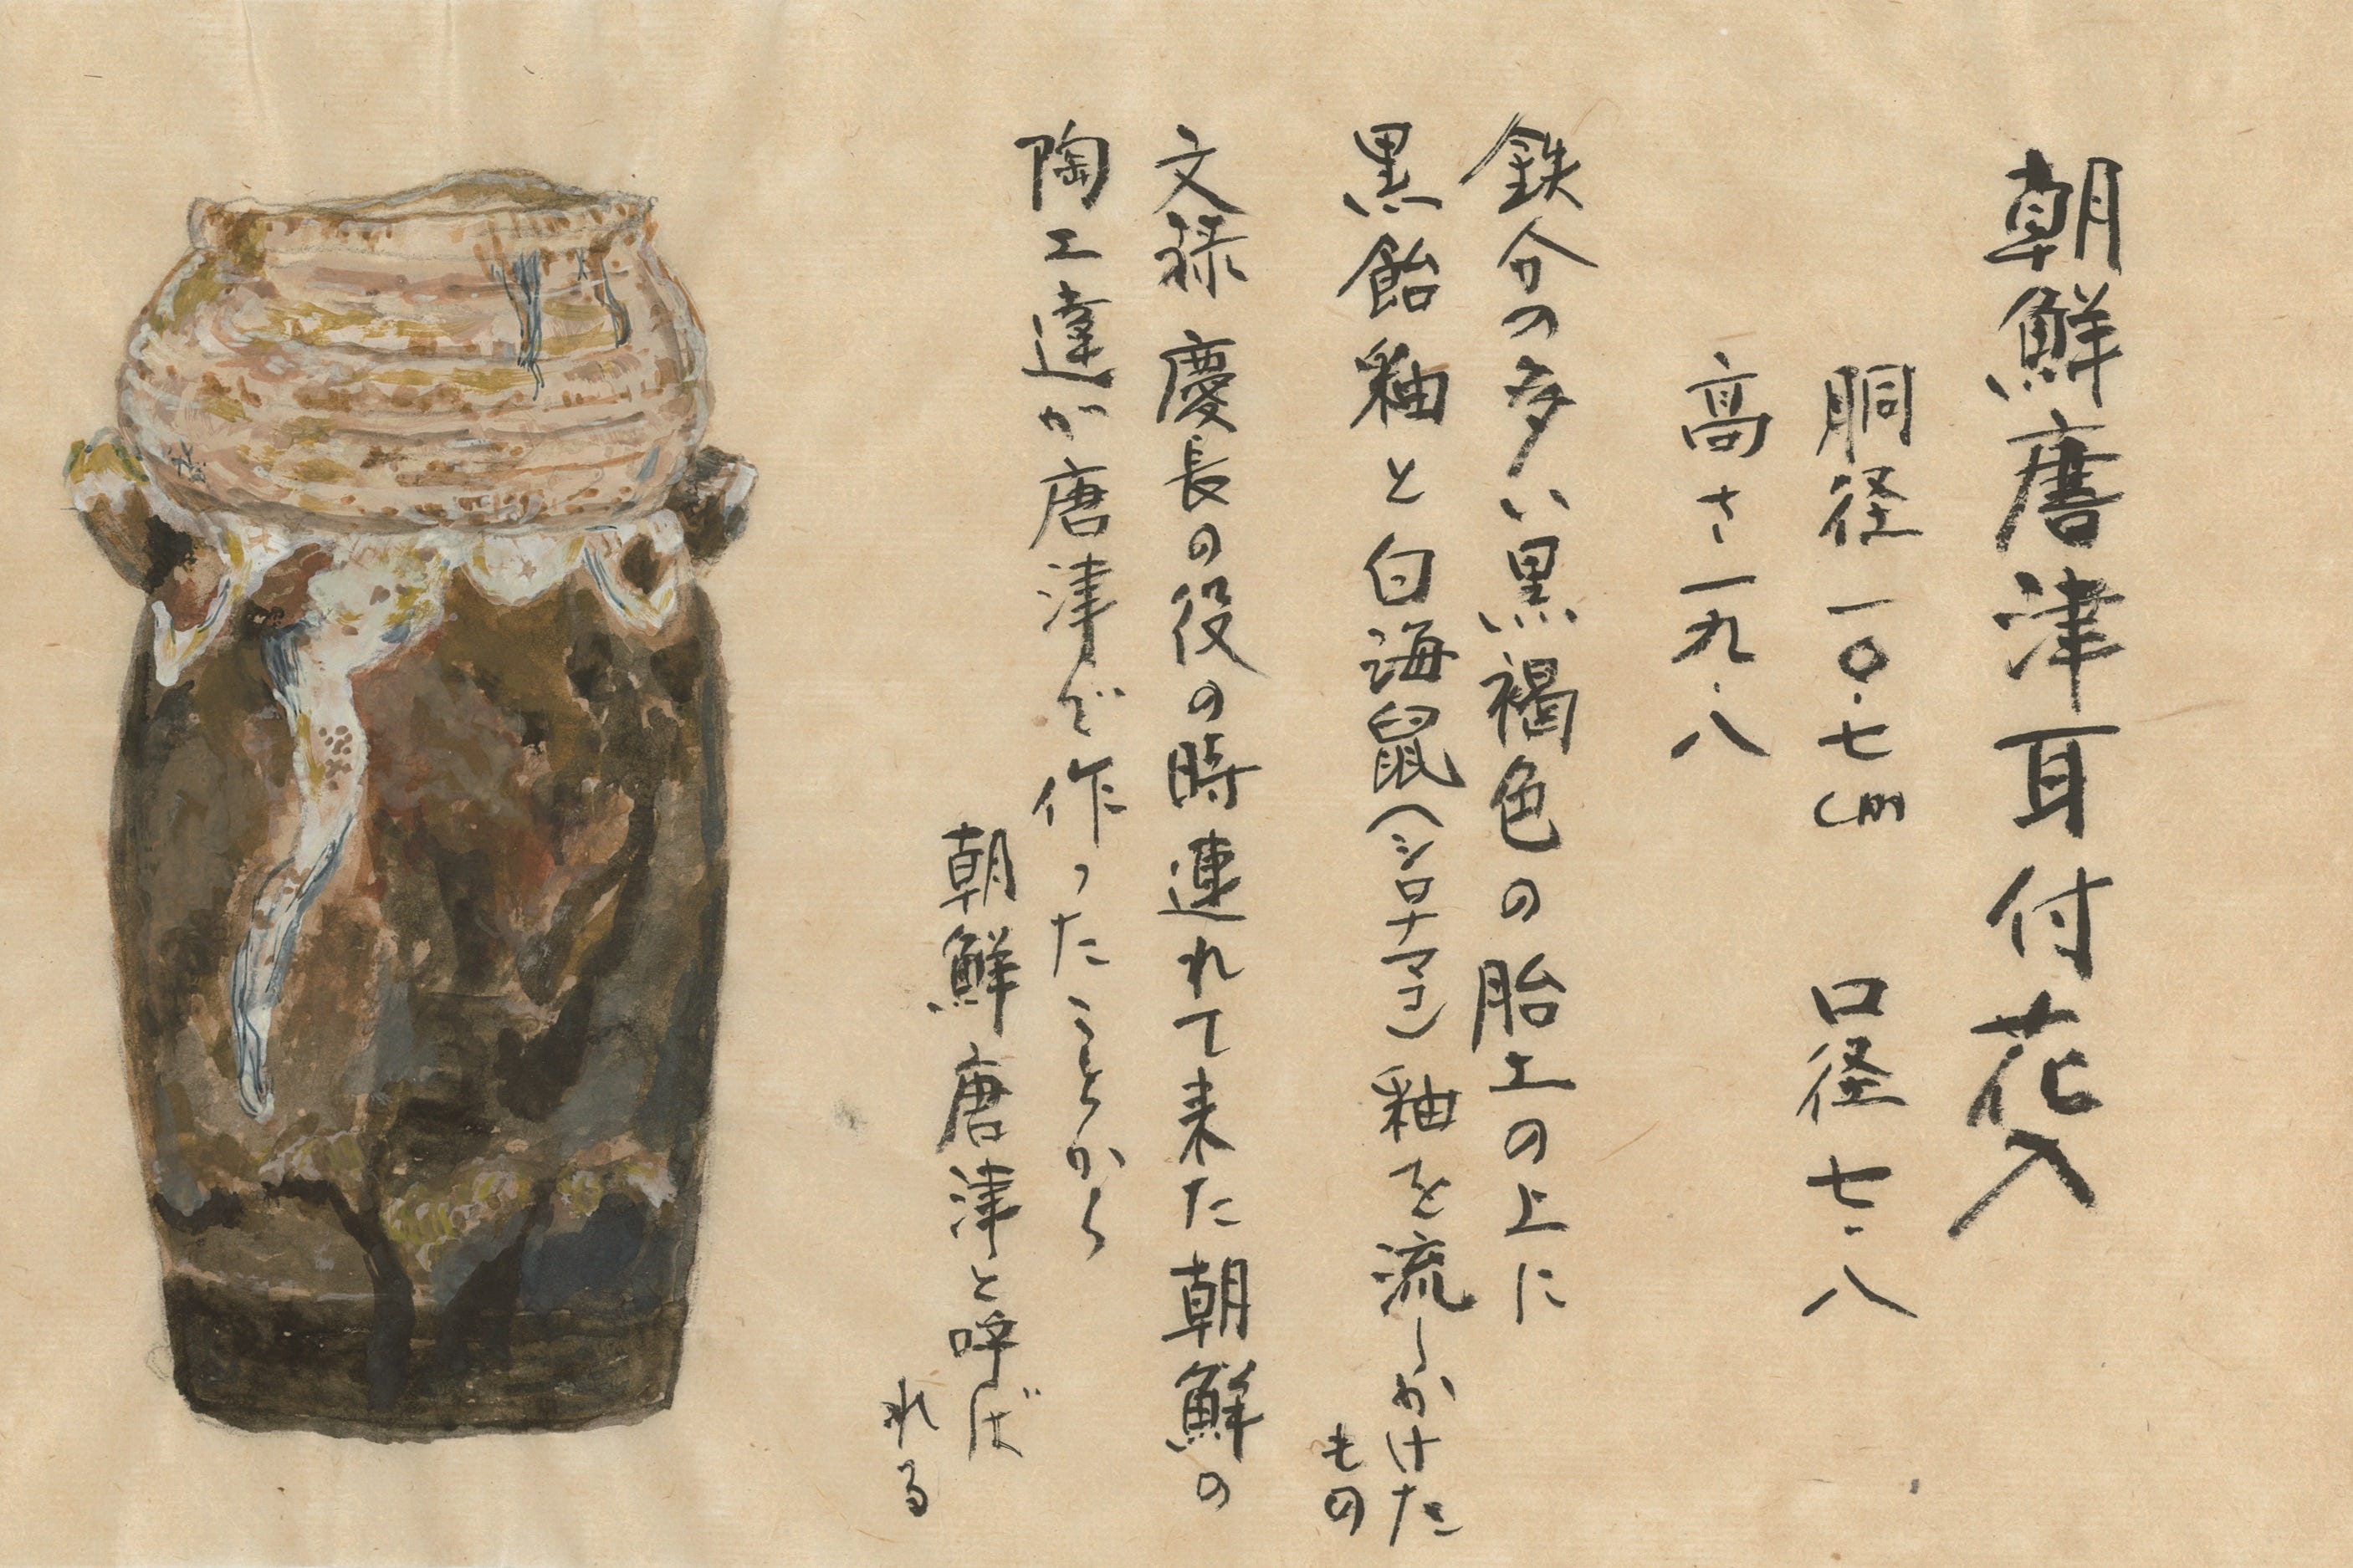 朝鮮唐津耳付花入
胴径一〇・七cm 口径七・八
高さ一九・八
鉄分の多い黒褐色の胎土の上に
黒飴釉と白海鼠(シロナマコ)釉を流しかけた
もの
文禄 慶長の役の時連れて来た朝鮮の
陶工達が唐津で作ったことから
朝鮮唐津と呼ば
れる